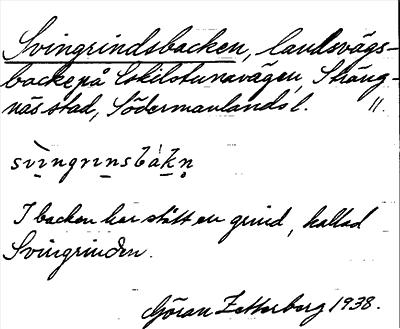 Svingrindsbacken, landsvägs-
backe på Eskilstunavägen, Sträng-
näs stad, Södermanlands l. 11.
svìngrɩnsbàkn̥
I backen har stått en grind, kallad
Svingrinden.
Göran Zetterberg 1938.